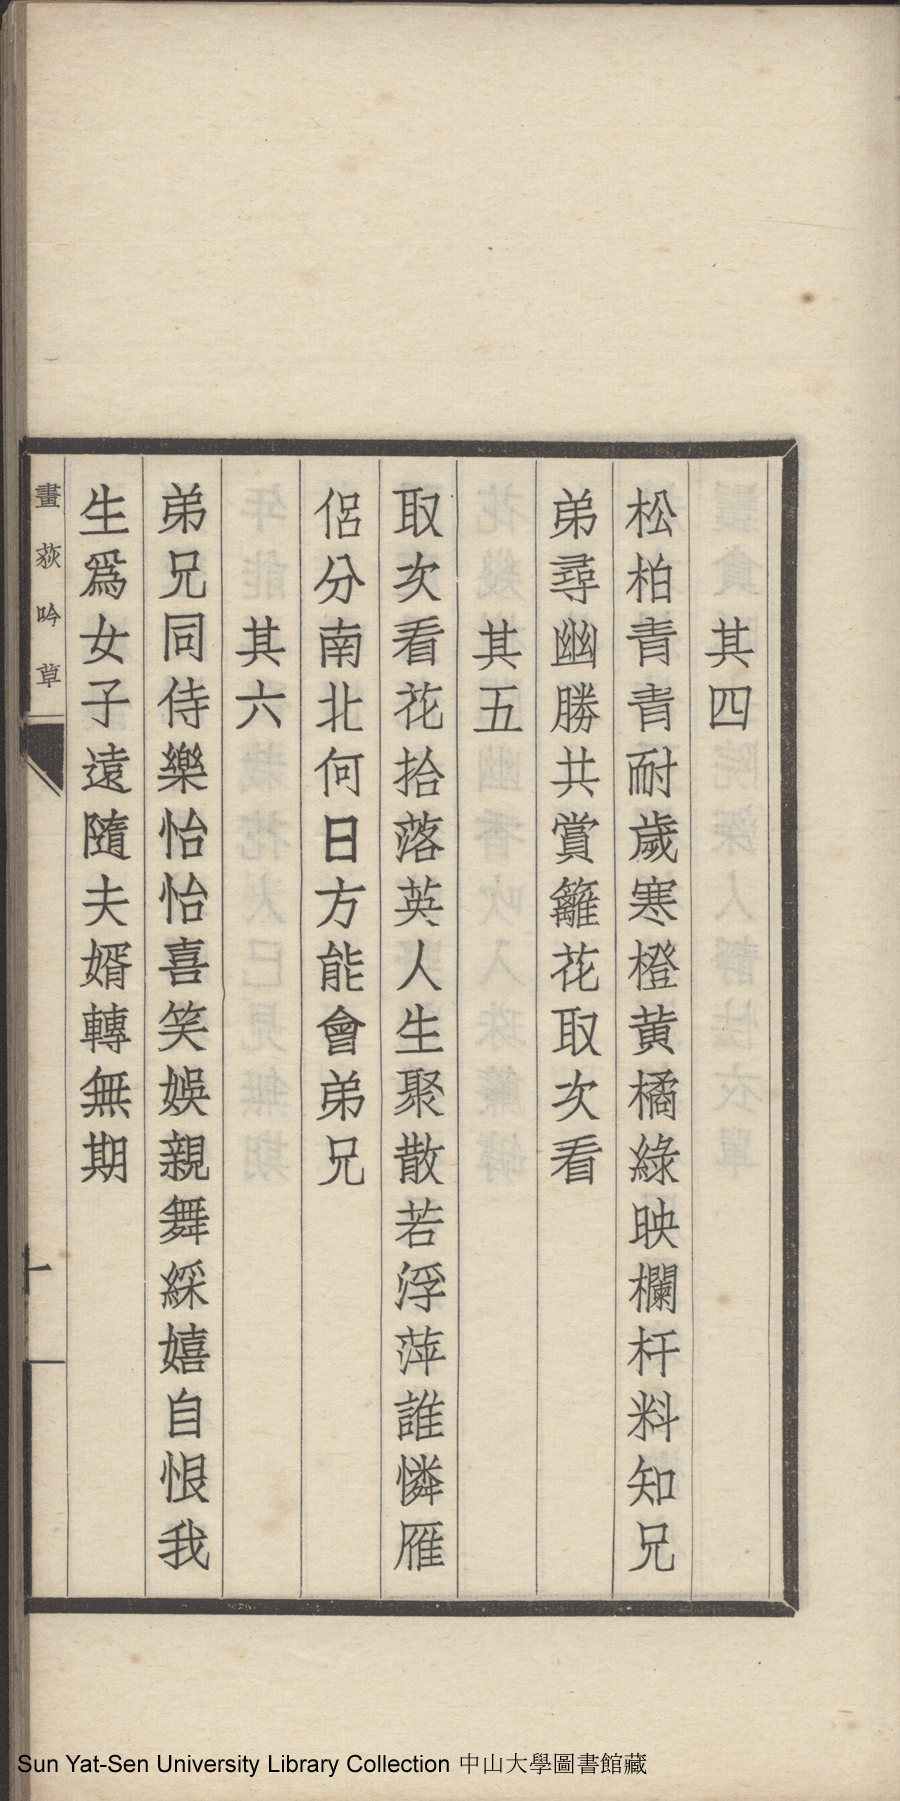 其四
松柏青青耐歲寒橙黄橘綠映欄杆料知兄
弟尋幽勝共賞籬花取次看
其五
取次看花拾落英人生聚散若浮萍誰憐雁
侶分南北何日方能會弟兄
其六
弟兄同侍樂怡怡喜笑娛親舞綵嬉自恨我
生爲女子遠隨夫婿轉無期
畫荻吟草
十
Sun Yat-Sen University Library Collection 中山大學圖書館藏